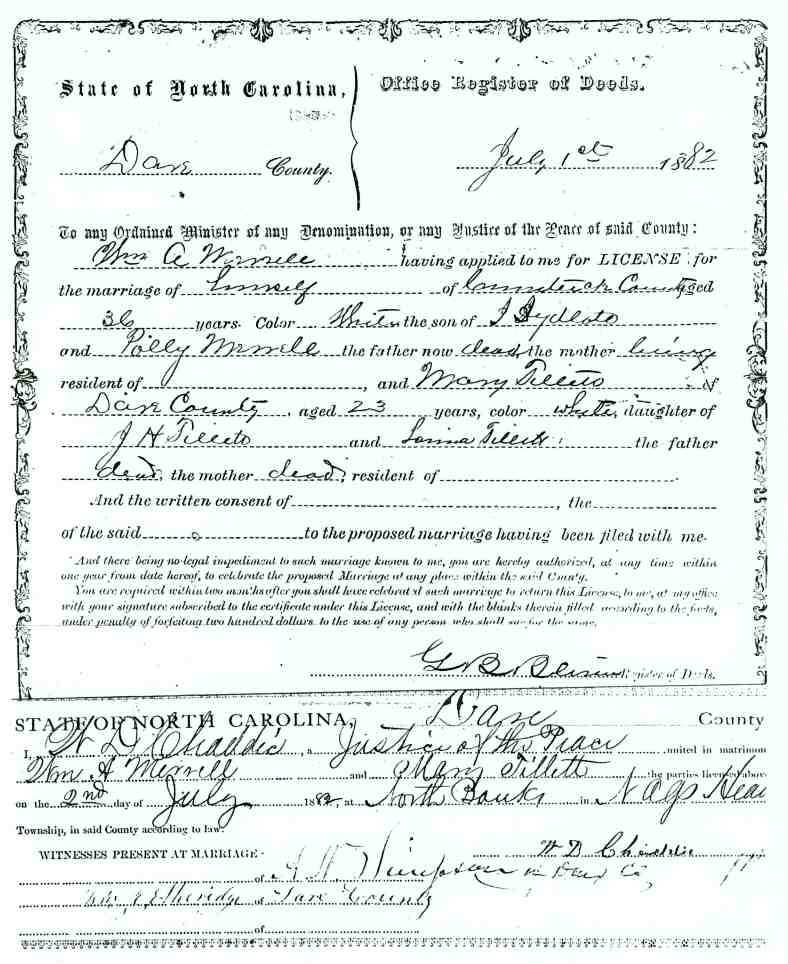 State of North Carolina, Office Register of Deeds.
Dare County. July 1st 1882
To any Ordained Minister of any Denomination, or any Justice of the Peace of said County:
Wm A having applied to me for LICENSE for
the marriage of himself of County aged
36 years. Color White the son of
and Polly Merrell the father now dead, the mother living
resident of , and Mary Tillett of
Dare County, aged 23 years, color white, daughter of
J H Tillett and Tillett the father
dead, the mother dead, resident of
And the written consent of , the
of the said to the proposed marriage having been filed with me.
And there being no legal impediment to such marriage known to me, you are hereby authorized, at any time within
one year from date hereof, to celebrate the proposed Marriage at any place within the said County.
You are required within two months after you shall have celebrated such marriage to return this License, to me, at my office
with your signature subscribed to the certificate under this License, and with the blanks therein filled according to the facts,
under penalty of forfeiting two hundred dollars to the use of any person who shall sue for the same.
G B Register of Deeds.
STATE OF NORTH CAROLINA, Dare County
I, W D a Justice of the Peace united in matrimony
Wm A Merrell and Mary Tillett the parties licensed above
on the 2nd day of July 1882, at North Banks in Nags Head
Township, in said County according to law.
WITNESSES PRESENT AT MARRIAGE: W D
of Dare Co
Etheridge of Dare County
of